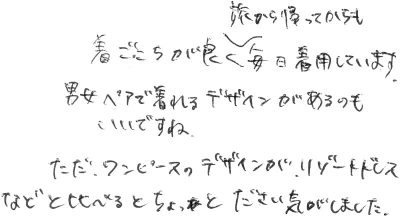 旅から帰ってからも
着ごこちが良く毎日着用しています。
男女ペアで着れるデザインがあるのも
いいですね。
ただ、ワンピースのデザインが、リゾートドレス
などと比べるとちょっとださい気がしました。